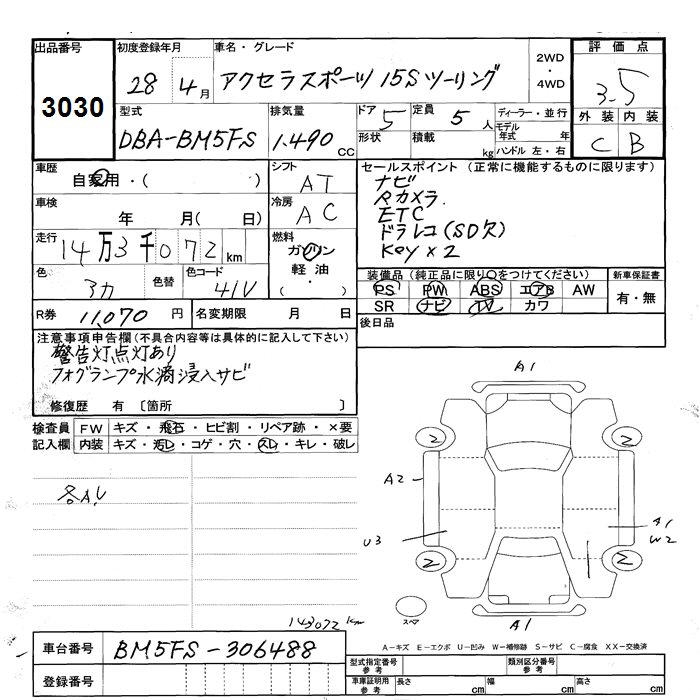 出品番号 初度登録年月 車名・グレード 2WD・4WD 評価点
3030 28 4月 アクセラスポーツ 15Sツーリング 3.5
型式 排気量 ドア 定員 ディーラー・並行 外装 内装
DBA-BM5FS 1.490 CC 5 5人 モデル年式 年 C B
形状 積載 kg ハンドル 左・右
車歴 シフト セールスポイント (正常に機能するものに限ります)
自家用・( ) AT ナビ
車検 冷房 Rカメラ
年 月( 日) AC ETC
走行 燃料 ドラレコ(SD欠)
14万3千072km ガソリン 軽油 ・( ) Key×2
色 色替 色コード 装備品(純正品に限り〇をつけてください) 新車保証書
41V PS PW ABS エアB AW 有・無
SR ナビ TV カワ
R券 11,070円 名変期限 月 日 後日品
注意事項申告欄(不具合内容等は具体的に記入して下さい)
警告灯点灯あり
フォグランプ水滴浸入サビ
修復歴 有 〔箇所 〕
検査員 FW キズ・飛石・ヒビ割・リペア跡・×要
記入欄 内装 キズ・汚レ・コゲ・穴・スレ・キレ・破レ
A1
2 2
A2
U3 A1
W2
2 2
スペア A1
143072km
車台番号 BM5FS-306488
登録番号
A-キズ E-エクボ U-凹み W-補修跡 S-サビ C-腐食 XX-交換済
型式指定番号 参考 類別区分番号 参考
車庫証明用 参考 長さ cm 幅 cm 高さ cm